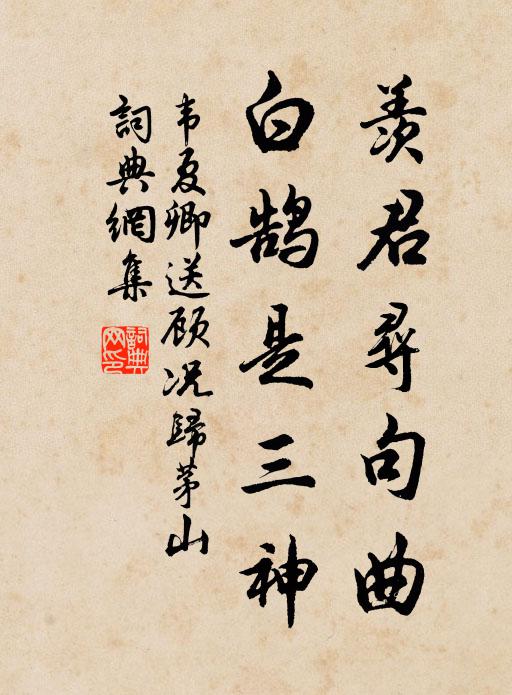 羨君尋句曲
白鹄是三神
韦夏卿送顾况歸茅山
詞典網集
詞典网印